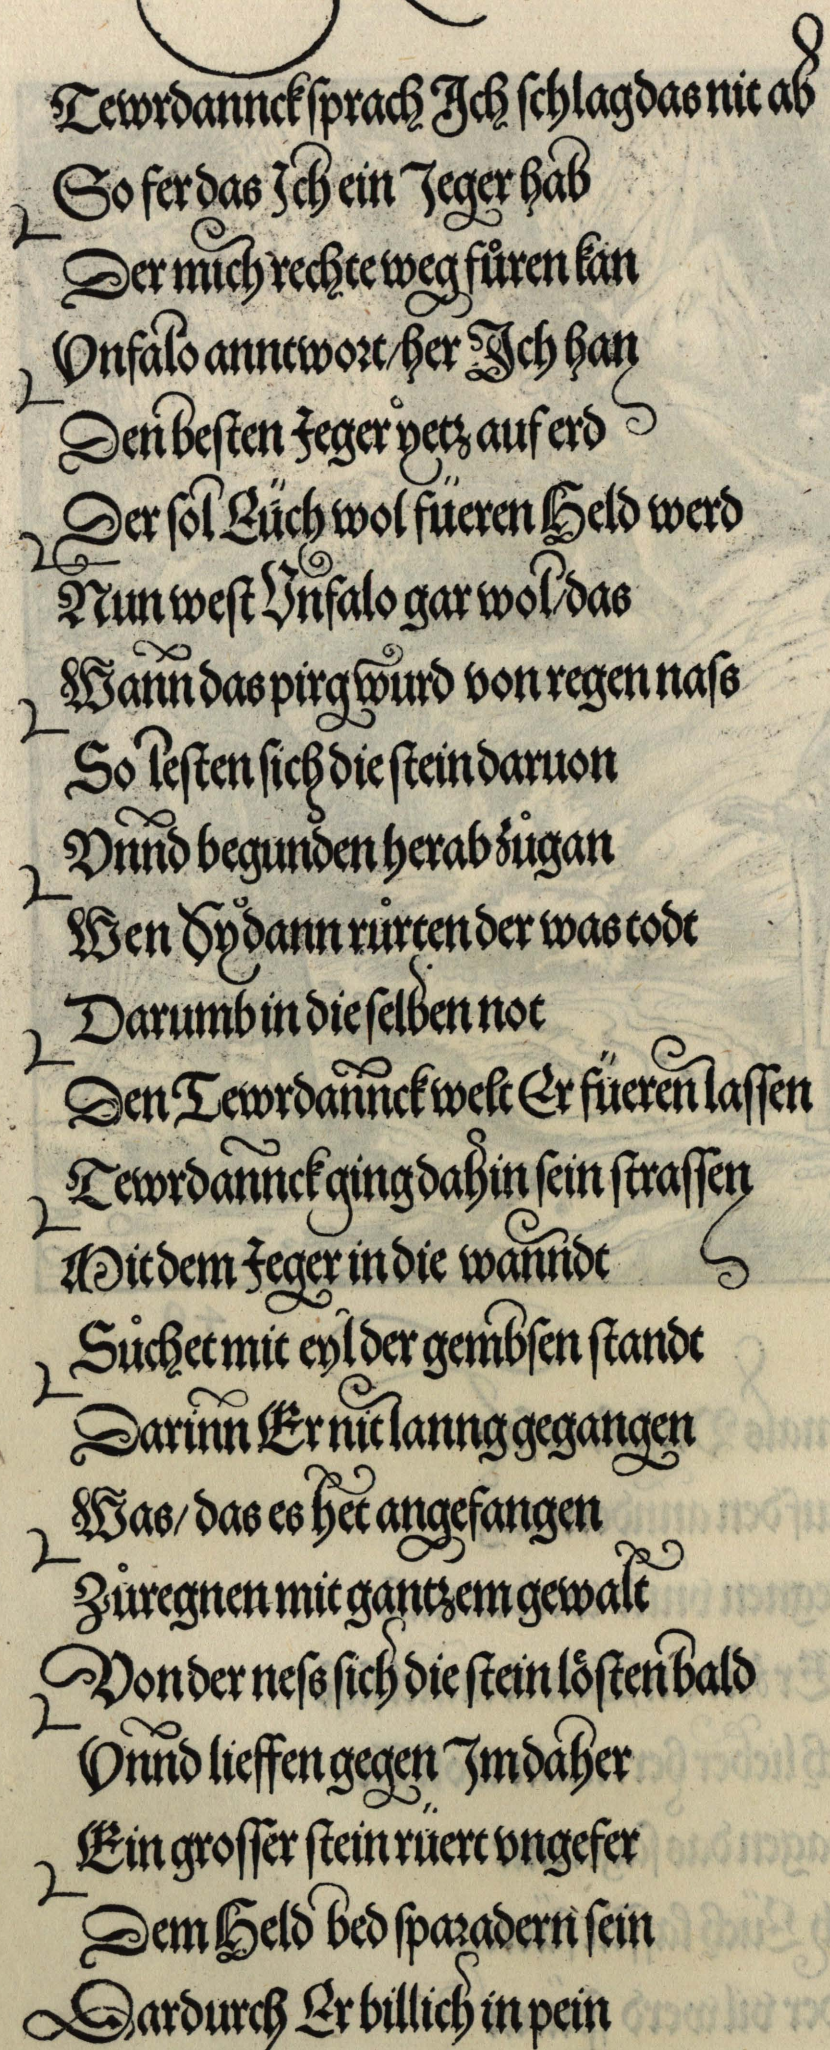 Tewrdannck sprach Ich schlag das nit ab
So fer das Ich ein Jeger hab
Der mich rechte weg fůren kan
Vnfalo anntwort/her Ich han
Den besten Jeger yetz auf erd
Der sol Eüch wol füeren Held werd
Nun west Vnfalo gar wol/das
Wann das pirg wurd von regen nass
So lesten sich die stein daruon
Vnnd begunden herab zůgan
Wen Sy dann růrten der was todt
Darumb in die selben not
Den Tewrdannck welt Er füeren lassen
Tewrdannck ging dahin sein strassen
Mit dem Jeger in die wanndt
Sůchet mit eyl der gembsen standt
Darinn Er nit lanng gegangen
Was/das es het angefangen
Zůregnen mit gantzem gewalt
Von der ness sich die stein lösten bald
Vnnd lieffen gegen Im daher
Ein grosser stein rüert vngefer
Dem Held bed sparadern sein
Dardurch Er billich in pein